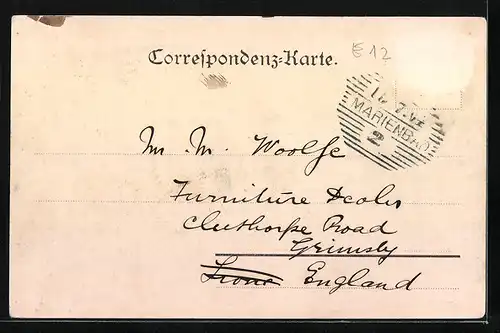 E 12
Correspondenz-Karte.
MARIENBAD
2
M. Woolfe
Furniture Dealer
Cleethorpe Road
Grimsby
England